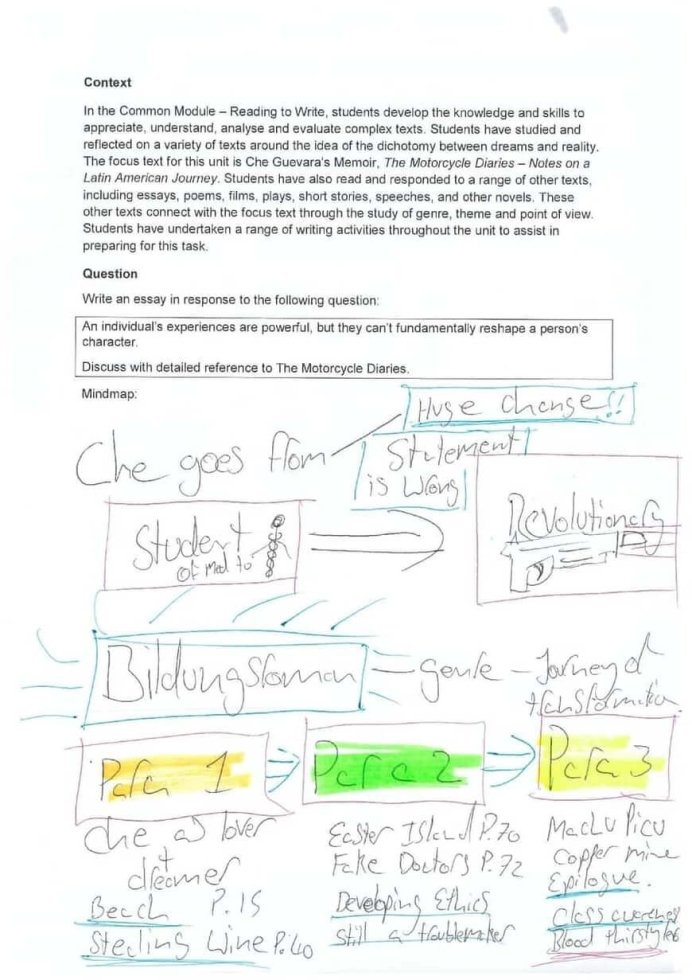 Context
In the Common Module – Reading to Write, students develop the knowledge and skills to
appreciate, understand, analyse and evaluate complex texts. Students have studied and
reflected on a variety of texts around the idea of the dichotomy between dreams and reality.
The focus text for this unit is Che Guevara's Memoir, The Motorcycle Diaries – Notes on a
Latin American Journey. Students have also read and responded to a range of other texts,
including essays, poems, films, plays, short stories, speeches, and other novels. These
other texts connect with the focus text through the study of genre, theme and point of view.
Students have undertaken a range of writing activities throughout the unit to assist in
preparing for this task.
Question
Write an essay in response to the following question:
An individual's experiences are powerful, but they can't fundamentally reshape a person's
character.
Discuss with detailed reference to The Motorcycle Diaries.
Mindmap:
Huge change!!
Che goes from
Statement
is wrong
Student
of med to
Revolutionary
Bildungsroman – genre – Journey of
transformation
Para 1
Para 2
Para 3
Che as lover
+
dreamer
Beach P.15
Stealing Wine P.40
Easter Island P.70
Fake Doctors P.72
Developing Ethics
Still a troublemaker
Machu Picu
Copper mine
Epilogue.
Class awareness
Blood thirstyness